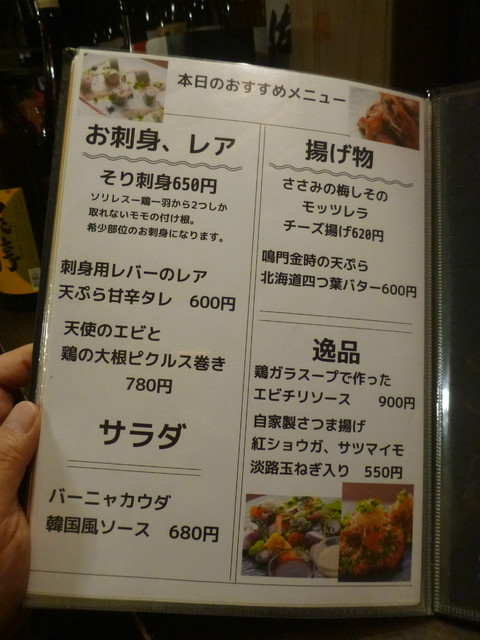 本日のおすすめメニュー
お刺身、レア
そり刺身650円
ソリレス一鶏一羽から2つしか
取れないモモの付け根。
希少部位のお刺身になります。
刺身用レバーのレア
天ぷら甘辛タレ 600円
天使のエビと
鶏の大根ピクルス巻き
780円
サラダ
バーニャカウダ
韓国風ソース 680円
揚げ物
ささみの梅しその
モッツレラ
チーズ揚げ620円
鳴門金時の天ぷら
北海道四つ葉バター600円
逸品
鶏ガラスープで作った
エビチリソース 900円
自家製さつま揚げ
紅ショウガ、サツマイモ
淡路玉ねぎ入り 550円